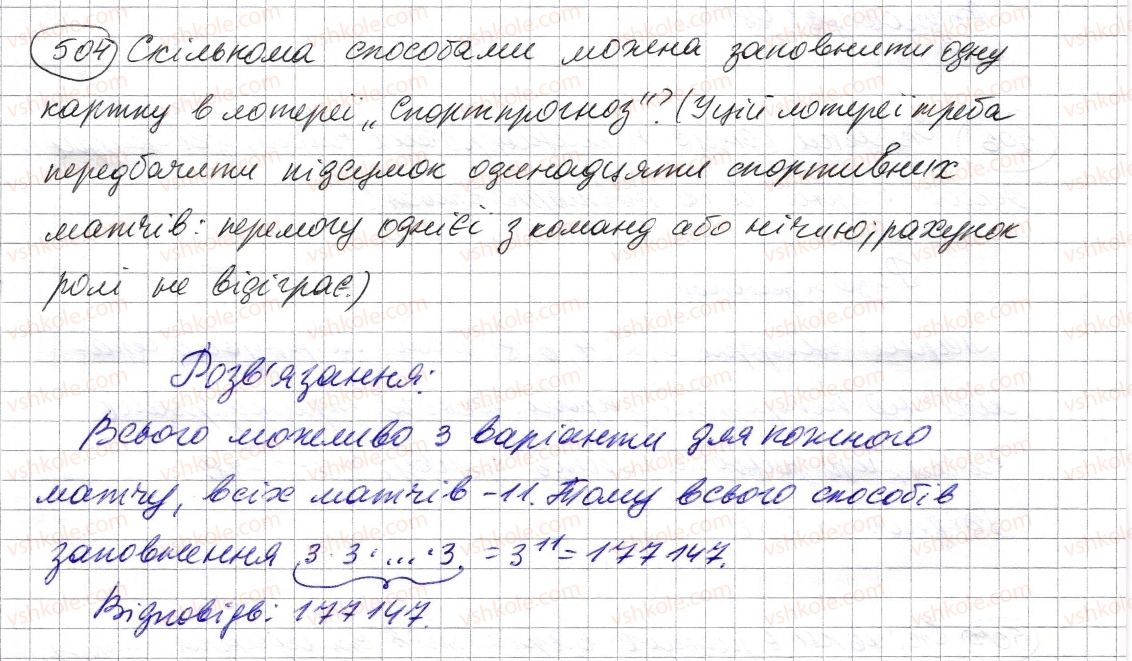 504 Скількома способами можна заповнити одну
картку в лотереї „Спортпрогноз“? (У цій лотереї треба
передбачити підсумок одинадцяти спортивних
матчів: перемогу однієї з команд або нічию; рахунок
ролі не відіграє.)
Розв'язання:
Всього можливо 3 варіанти для кожного
матчу, всіх матчів - 11. Тому всього способів
заповнення 3·3·...·3 = 3¹¹ = 177147.
Відповідь: 177147.